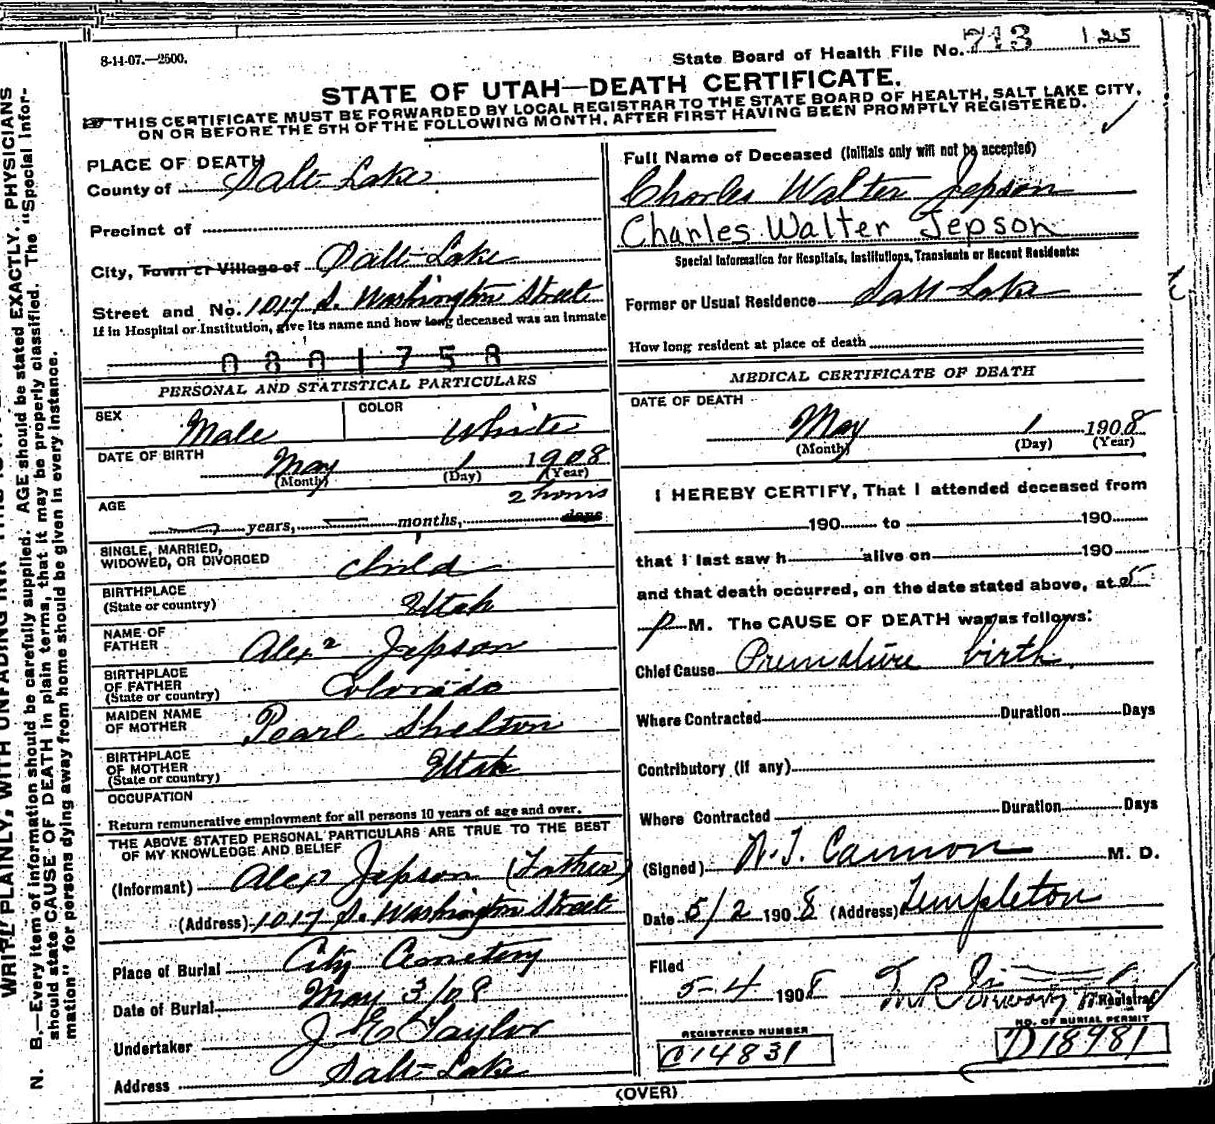 8-14-07.—2500.
State Board of Health File No. 713 125
STATE OF UTAH—DEATH CERTIFICATE.
THIS CERTIFICATE MUST BE FORWARDED BY LOCAL REGISTRAR TO THE STATE BOARD OF HEALTH, SALT LAKE CITY,
ON OR BEFORE THE 5TH OF THE FOLLOWING MONTH, AFTER FIRST HAVING BEEN PROMPTLY REGISTERED.
PLACE OF DEATH
County of Salt Lake
Precinct of
City, Town or Village of Salt Lake
Street and No. 1017 S. Washington Street
If in Hospital or Institution, give its name and how long deceased was an inmate
0801758
PERSONAL AND STATISTICAL PARTICULARS
SEX Male COLOR White
DATE OF BIRTH May 1 1908
(Month) (Day) (Year)
AGE 2 hours
years, months, days
SINGLE, MARRIED,
WIDOWED, OR DIVORCED child
BIRTHPLACE
(State or country) Utah
NAME OF
FATHER Alexr Jepson
BIRTHPLACE
OF FATHER
(State or country) Colorado
MAIDEN NAME
OF MOTHER Pearl Shelton
BIRTHPLACE
OF MOTHER
(State or country) Utah
OCCUPATION
Return remunerative employment for all persons 10 years of age and over.
THE ABOVE STATED PERSONAL PARTICULARS ARE TRUE TO THE BEST
OF MY KNOWLEDGE AND BELIEF
(Informant) Alex Jepson (Father)
(Address) 1017 S. Washington Street
Place of Burial City Cemetery
Date of Burial May 3/08
Undertaker J E Taylor
Address Salt-Lake
Full Name of Deceased (Initials only will not be accepted)
Charles Walter Jepson
Charles Walter Jepson
Special Information for Hospitals, Institutions, Transients or Recent Residents:
Former or Usual Residence Salt-Lake
How long resident at place of death
MEDICAL CERTIFICATE OF DEATH
DATE OF DEATH
May 1 1908
(Month) (Day) (Year)
I HEREBY CERTIFY, That I attended deceased from
190 to 190
that I last saw h alive on 190
and that death occurred, on the date stated above, at 5
p M. The CAUSE OF DEATH was as follows:
Chief Cause Premature birth.
Where Contracted Duration Days
Contributory (if any)
Where Contracted Duration Days
(Signed) Cannon M. D.
Date 5/2 1908 (Address) Templeton
Filed
5-4 1908 Registrar
REGISTERED NUMBER
C14831
NO. OF BURIAL PERMIT
D18981
(OVER)
N. B.—Every item of information should be carefully supplied. AGE should be stated EXACTLY. PHYSICIANS
should state CAUSE OF DEATH in plain terms, that it may be properly classified. The "Special Infor-
mation" for persons dying away from home should be given in every instance.
WRITE PLAINLY, WITH UNFADING INK